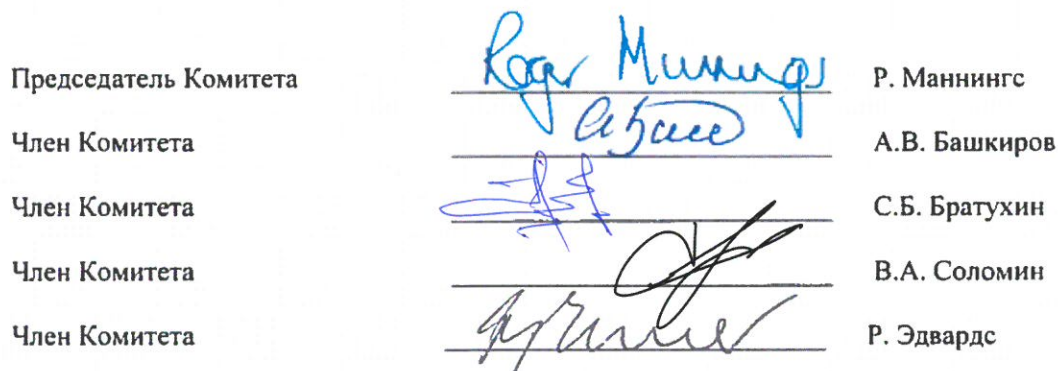 Председатель Комитета Roger Munnings Р. Маннингс
Член Комитета А.В. Башкиров
Член Комитета С.Б. Братухин
Член Комитета В.А. Соломин
Член Комитета Р. Эдвардс